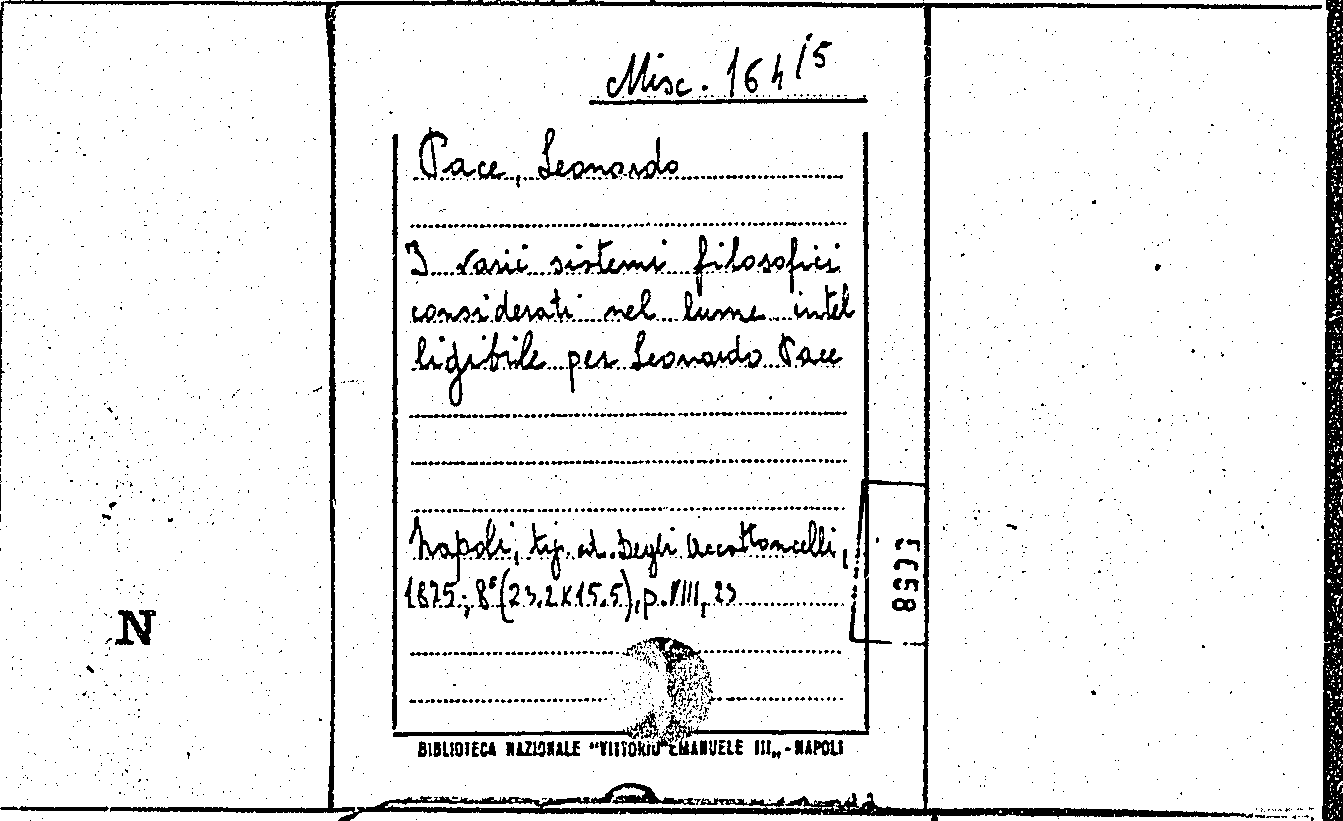 Misc. 164/5
Pace, Leonardo
I varii sistemi filosofici
considerati nel lume intel
ligibile per Leonardo Pace
Napoli, tip. ed. Degli Accattoncelli,
1875; 8° (23.2x15.5), p. VIII, 23
N
BIBLIOTECA NAZIONALE "VITTORIO EMANUELE III„ - NAPOLI